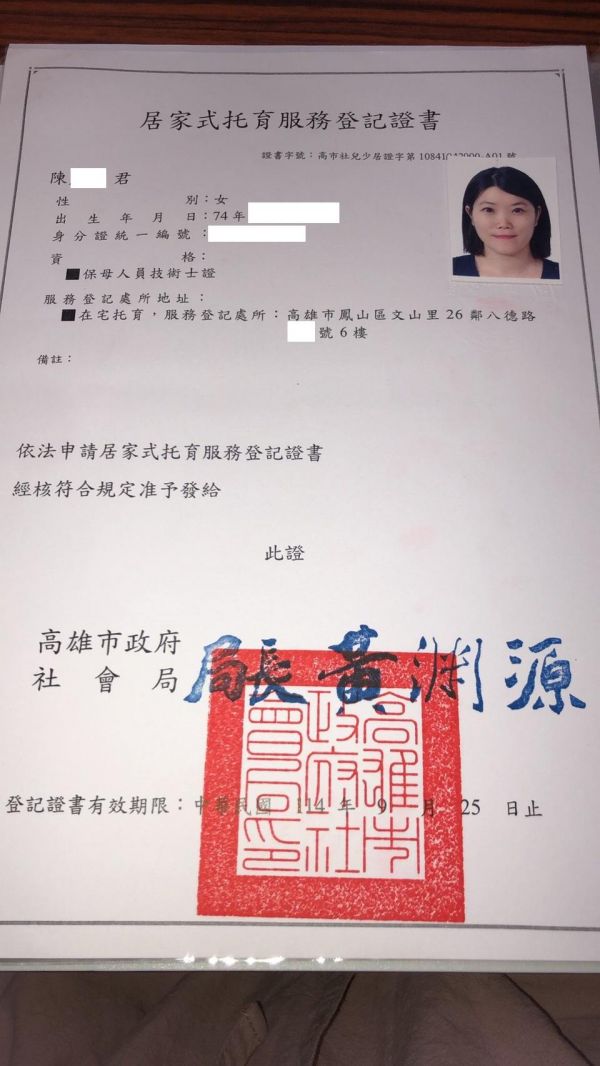 居家式托育服務登記證書
證書字號：高市社兒少居證字第
陳 君
性 別：女
出生年月日：74年
身分證統一編號：
資 格：
■保母人員技術士證
服務登記處所地址：
■在宅托育，服務登記處所：高雄市鳳山區文山里26鄰八德路
號6樓
備註：
依法申請居家式托育服務登記證書
經核符合規定准予發給
此證
高雄市政府
社會局
局長黃淵源
高雄市政府社會局印
登記證書有效期限：中華民國 114 年 9 月 25 日止